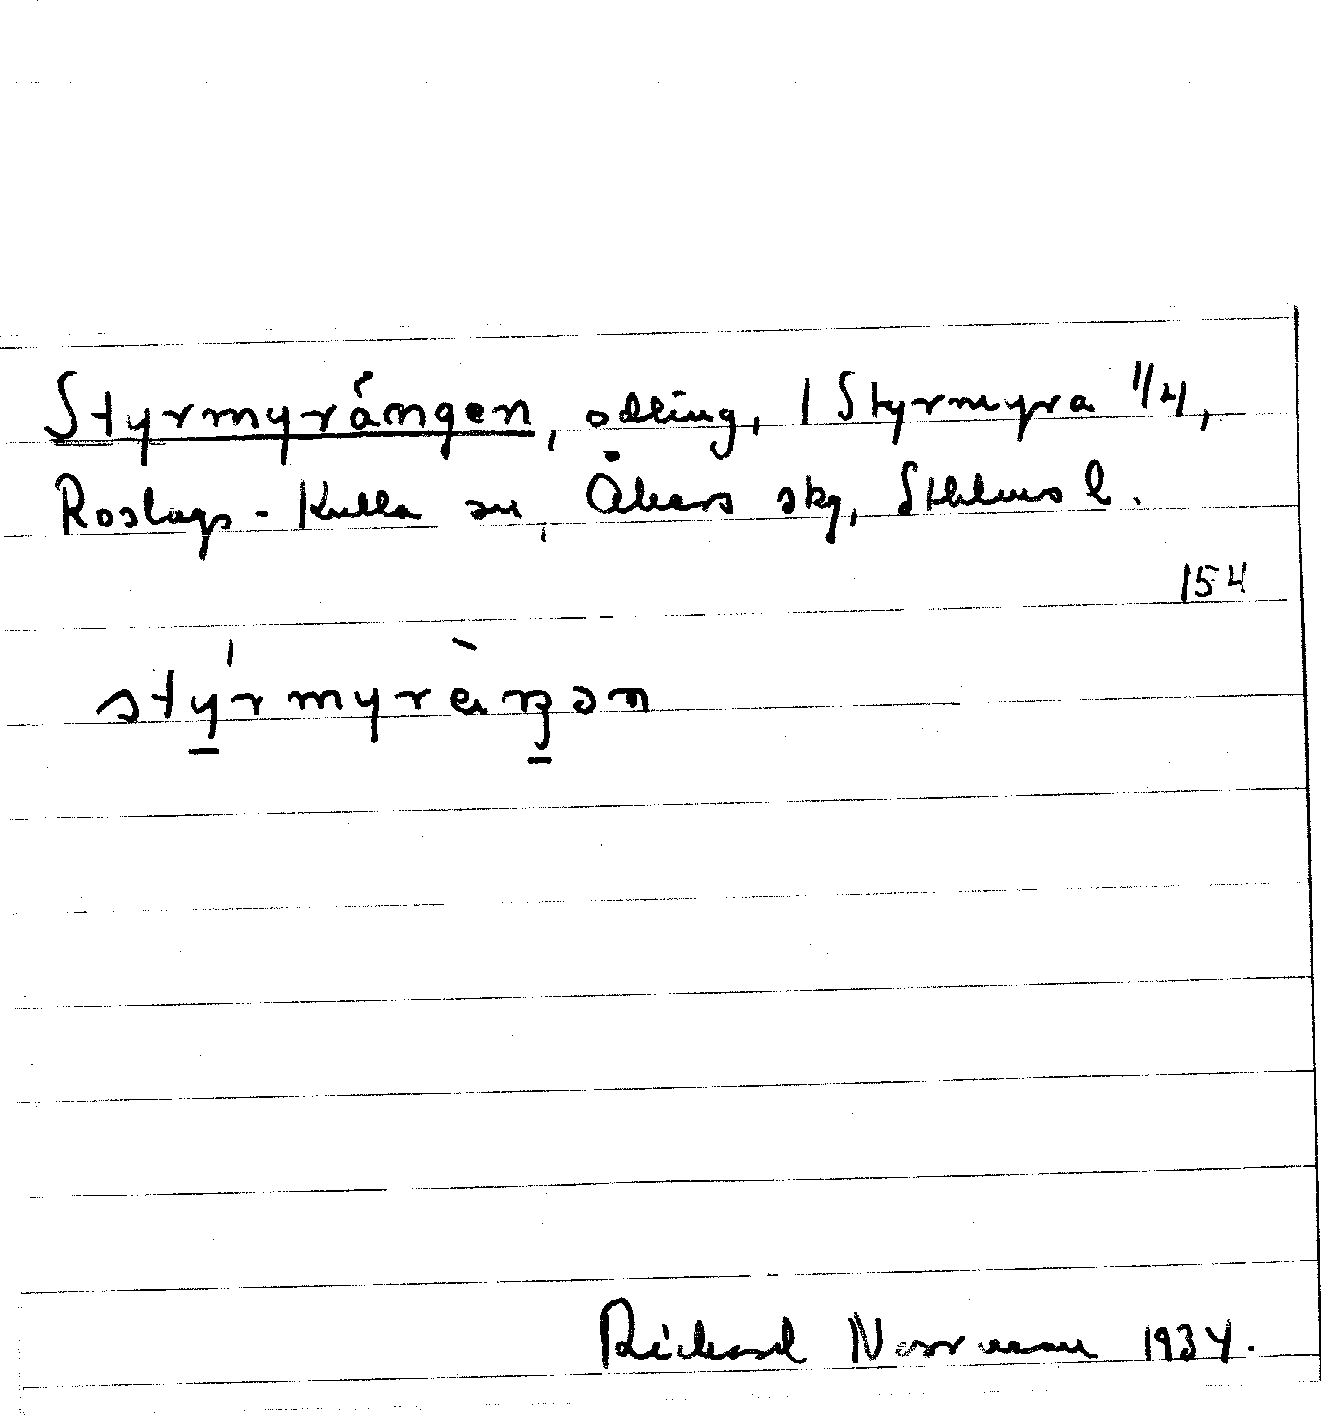 Styrmyrängen, odling, 1 Styrmyra 1/4,
Roslags-Kulla sn, Åkers skg, Sthlms l.
154
stýrmyrèŋən
Rickard Norrman 1934.